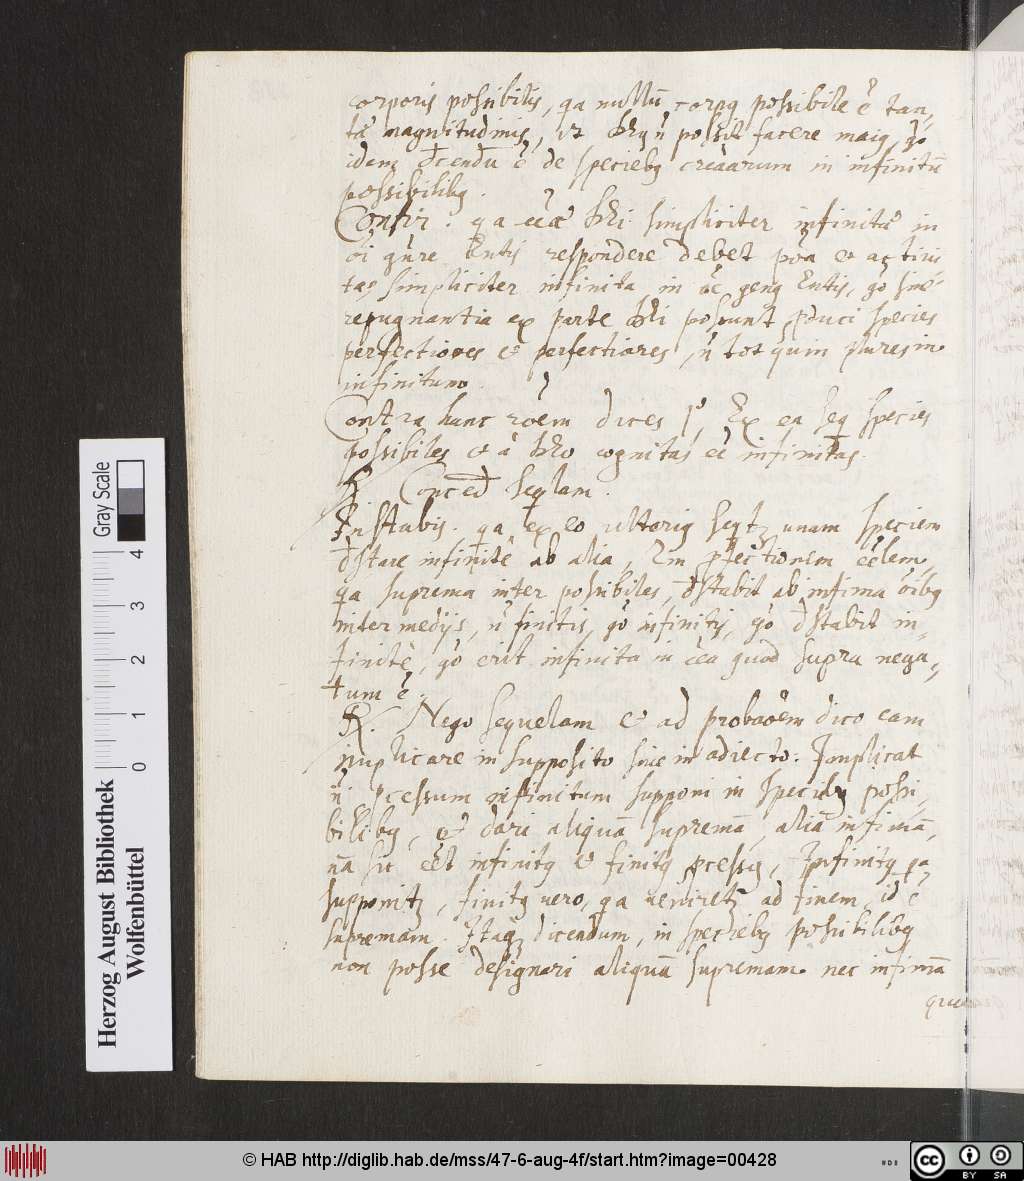 corporis possibilis, qa nullū corpq possibile ē tan-
tæ magnitudinis, possit facere maiq, go
idem dcendū ē de speciebq creaarum in infinitū
possibilibq.
Confir. qa simpliciter infinitū in
oi gn̄re Entis respondere debet poā et activi
tas simpliciter infinita in oē genq Entis, go sinē
repugnantia ex parte possunt produci species
perfectiores et perfectiores, n̄ tot quin plures in
infinitum.
Contra hanc roēm dices 1°, Ex ea seq species
possibiles et à cognitas eē infinitas.
R. Conced sequlam.
Instabis. qa ex eo ulteriq seqtz unam speciem
dstare infinitè ab alia, 2m pfectionem eēlem,
qa suprema inter possibiles, dstabit ab infima oibq
intermedijs, n̄ finitis, go infinitis, go dstabit in-
finitè, go erit infinita in eēa quod supra nega-
tum ē.
R. Nego sequelam et ad probaōem dico eam
implicare in supposito sive in adiecto. Implicat
n̄ pcessum infinitum supponi in speciebq possi-
bilibq, et dari aliquā supremā, aliā infimā,
nā sic eēt infinitq et finitq pcessq, Infinitq qa
supponitz, finitq vero, qa veniretz ad finem, id ē
supremam. Itaq dicendum, in speciebq possibilibq
non posse designari aliquā supremam nec infimā
Herzog August Bibliothek
Wolfenbüttel
Gray Scale
0 1 2 3 4
© HAB http://diglib.hab.de/mss/47-6-aug-4f/start.htm?image=00428
cc BY SA